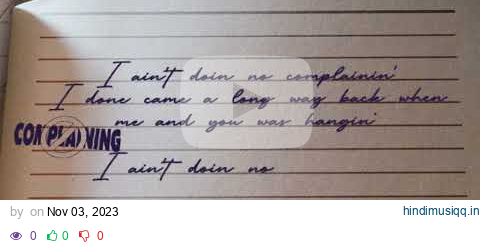 I ain't doin no complainin'
I done came a long way back when
me and you was hangin'
COMPLAINING
I ain't doin no
by on Nov 03, 2023
hindimusiqq.in
0 0 0